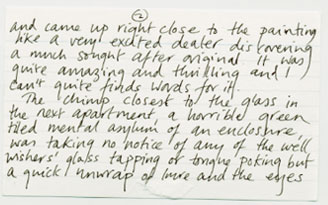 2
and came up right close to the painting
like a very excited dealer discovering
a much sought after original. It was
quite amazing and thrilling and I
can't quite finds words for it.
The chimp closest to the glass in
the next apartment, a horrible green
tiled mental asylum of an enclosure,
was taking no notice of any of the well
wishers' glass tapping or tongue poking but
a quick unwrap of mine and the eyes